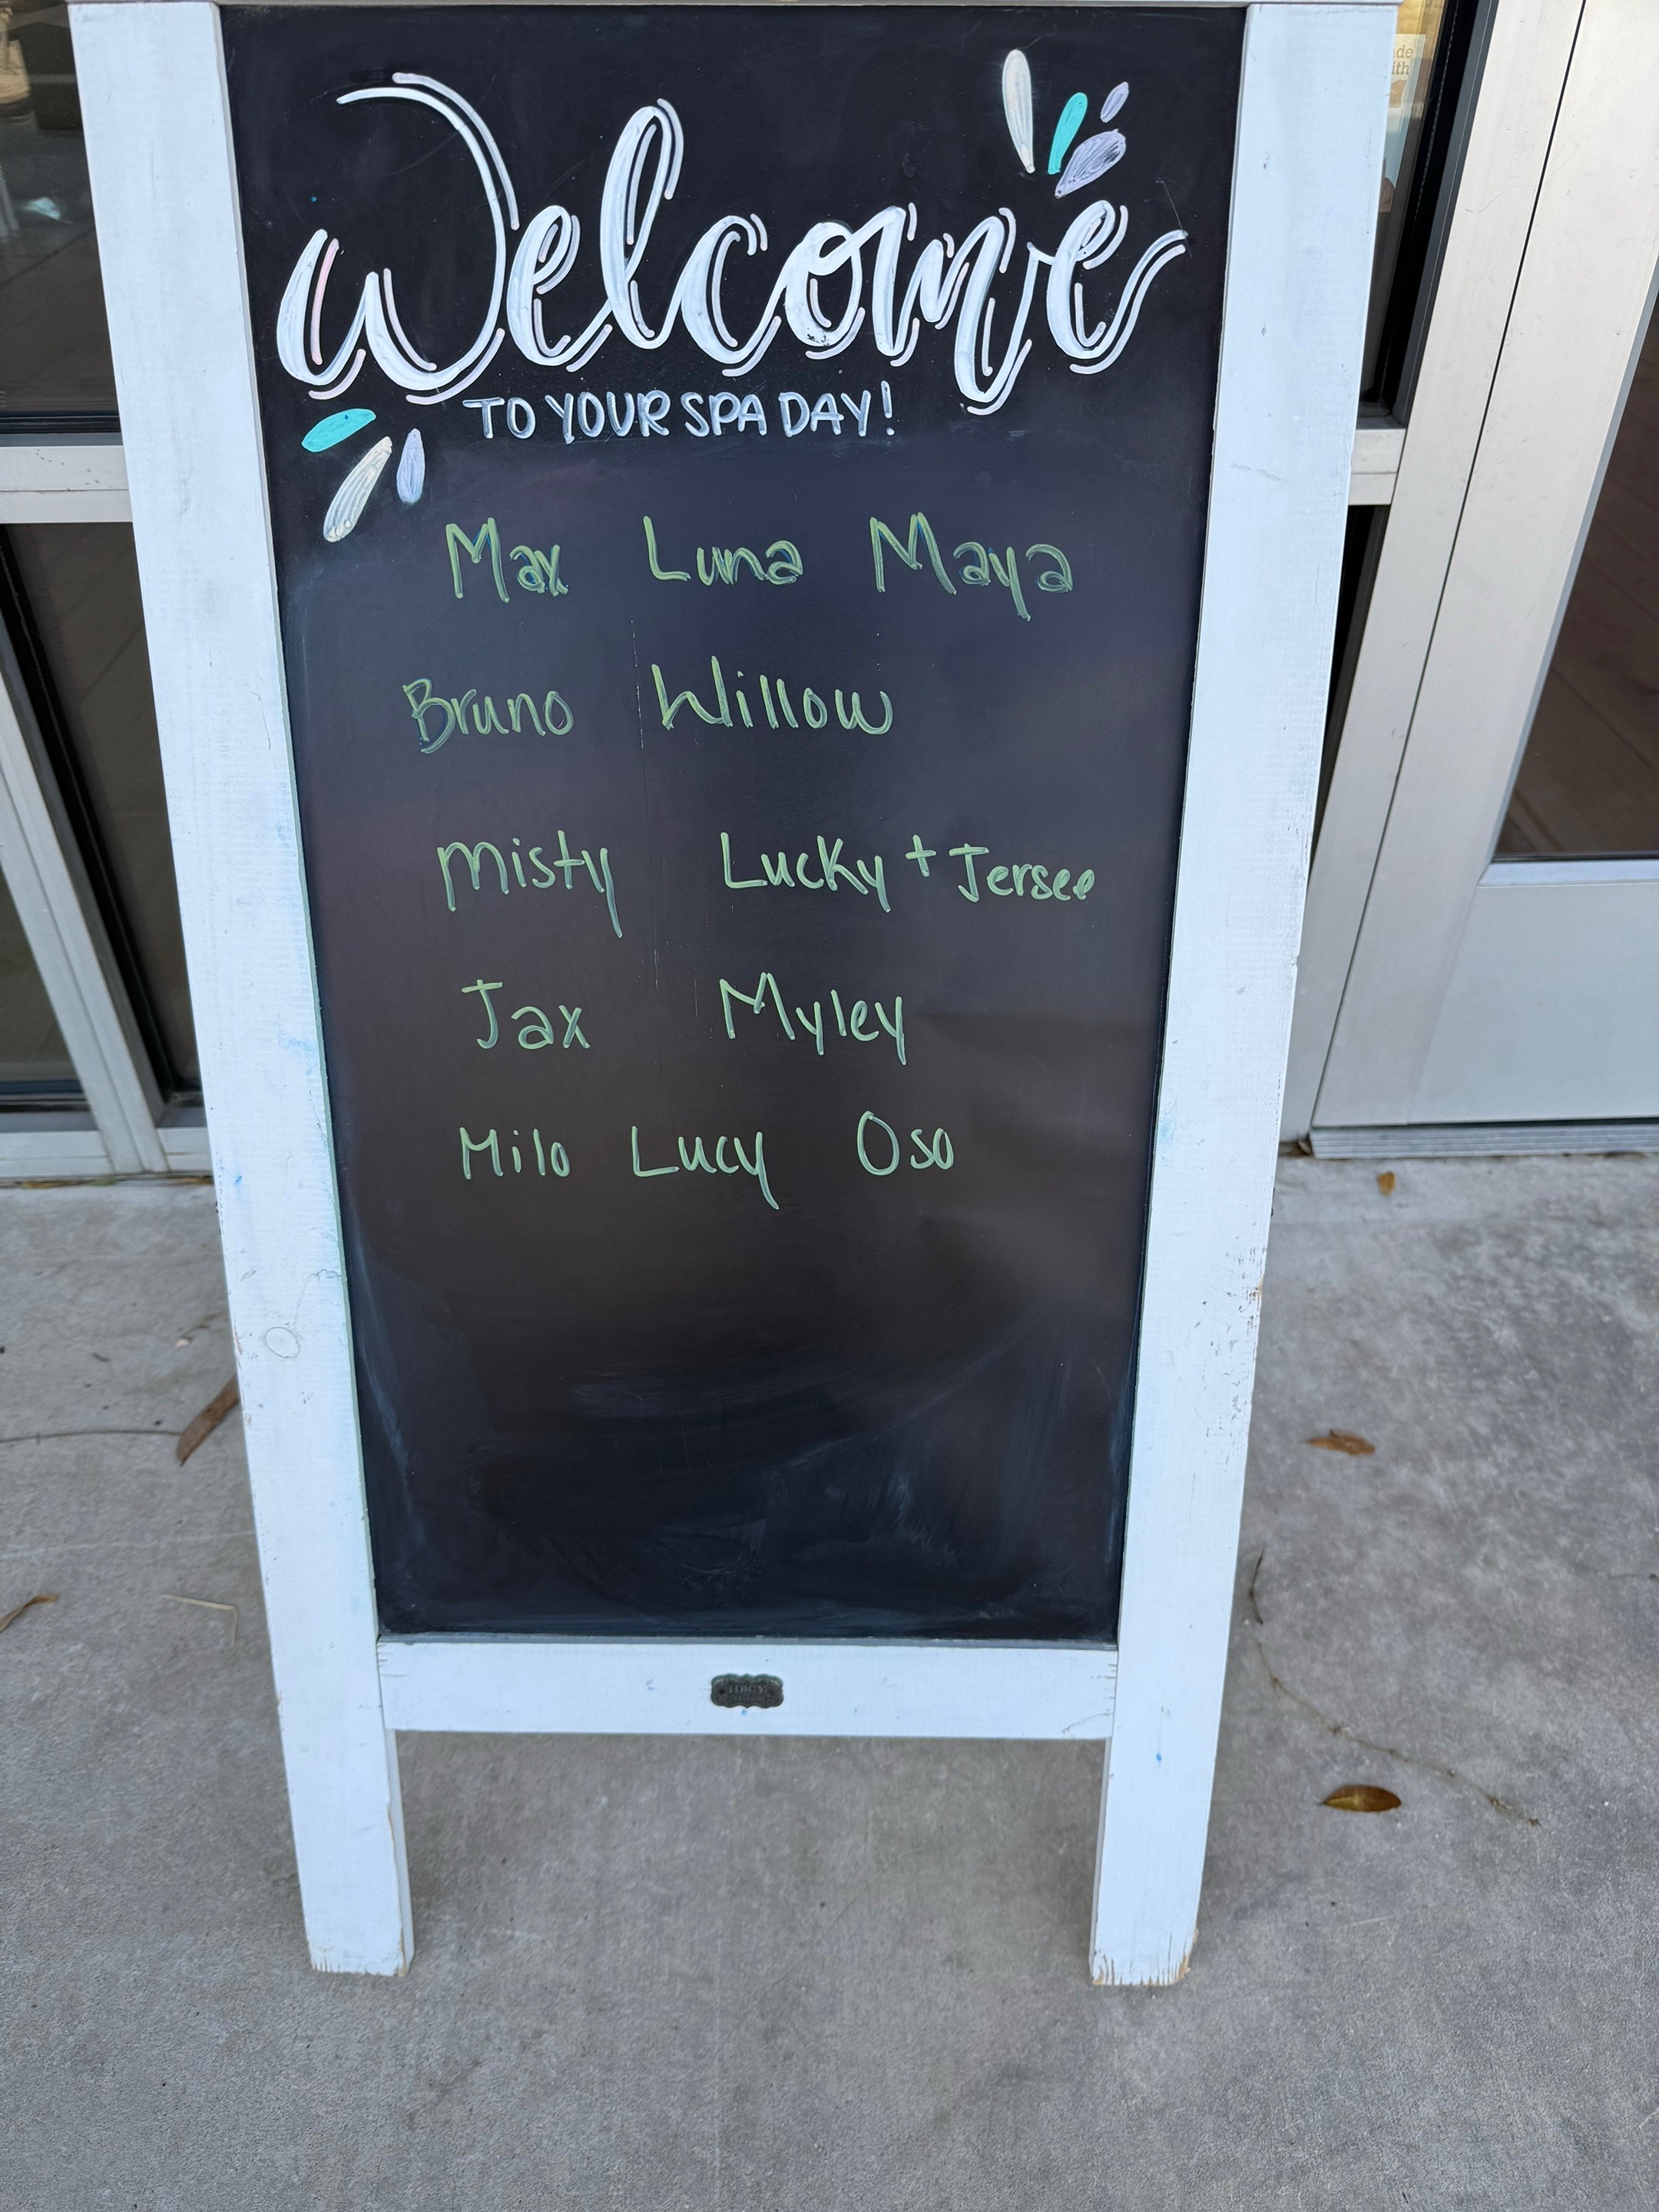 Welcome
TO YOUR SPA DAY!
Max Luna Maya
Bruno Willow
Misty Lucky + Jersee
Jax Myley
Milo Lucy Oso